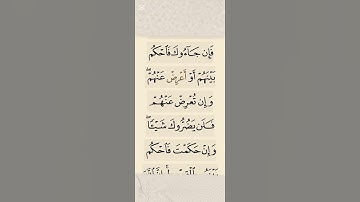 فَإِن جَآءُوكَ فَٱحْكُم
بَيْنَهُمْ أَوْ أَعْرِضْ عَنْهُمْ ۖ
وَإِن تُعْرِضْ عَنْهُمْ
فَلَن يَضُرُّوكَ شَيْـًٔا ۖ
وَإِنْ حَكَمْتَ فَٱحْكُم